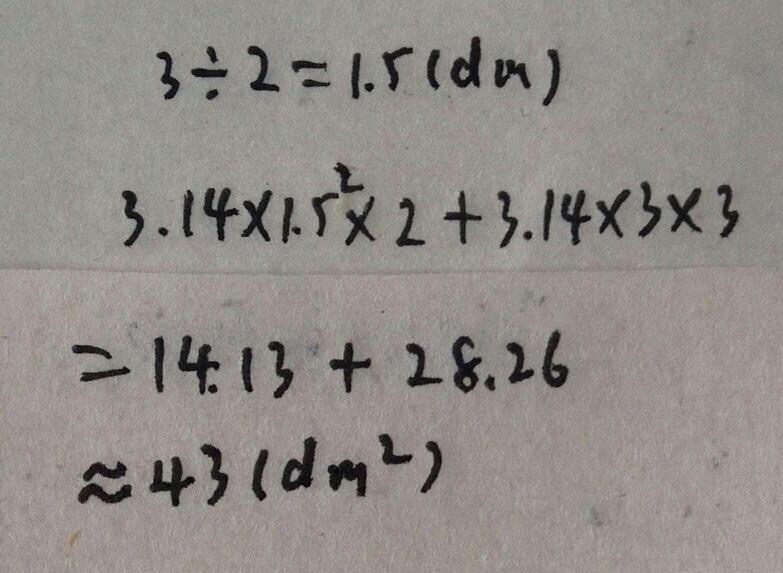 3÷2=1.5(dm)
3.14×1.5²×2+3.14×3×3
=14.13+28.26
≈43(dm²)